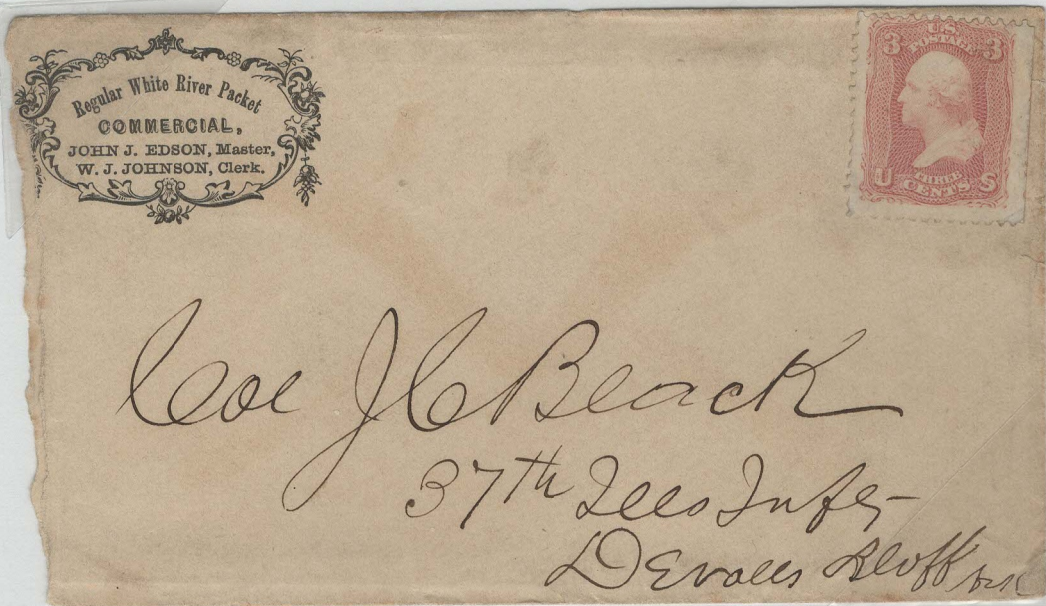 Regular White River Packet
COMMERCIAL,
JOHN J. EDSON, Master,
W. J. JOHNSON, Clerk.
3 U.S. POSTAGE 3
U THREE CENTS S
Col J C Black
37th Ills Infy
DEvalls Bluff Ark